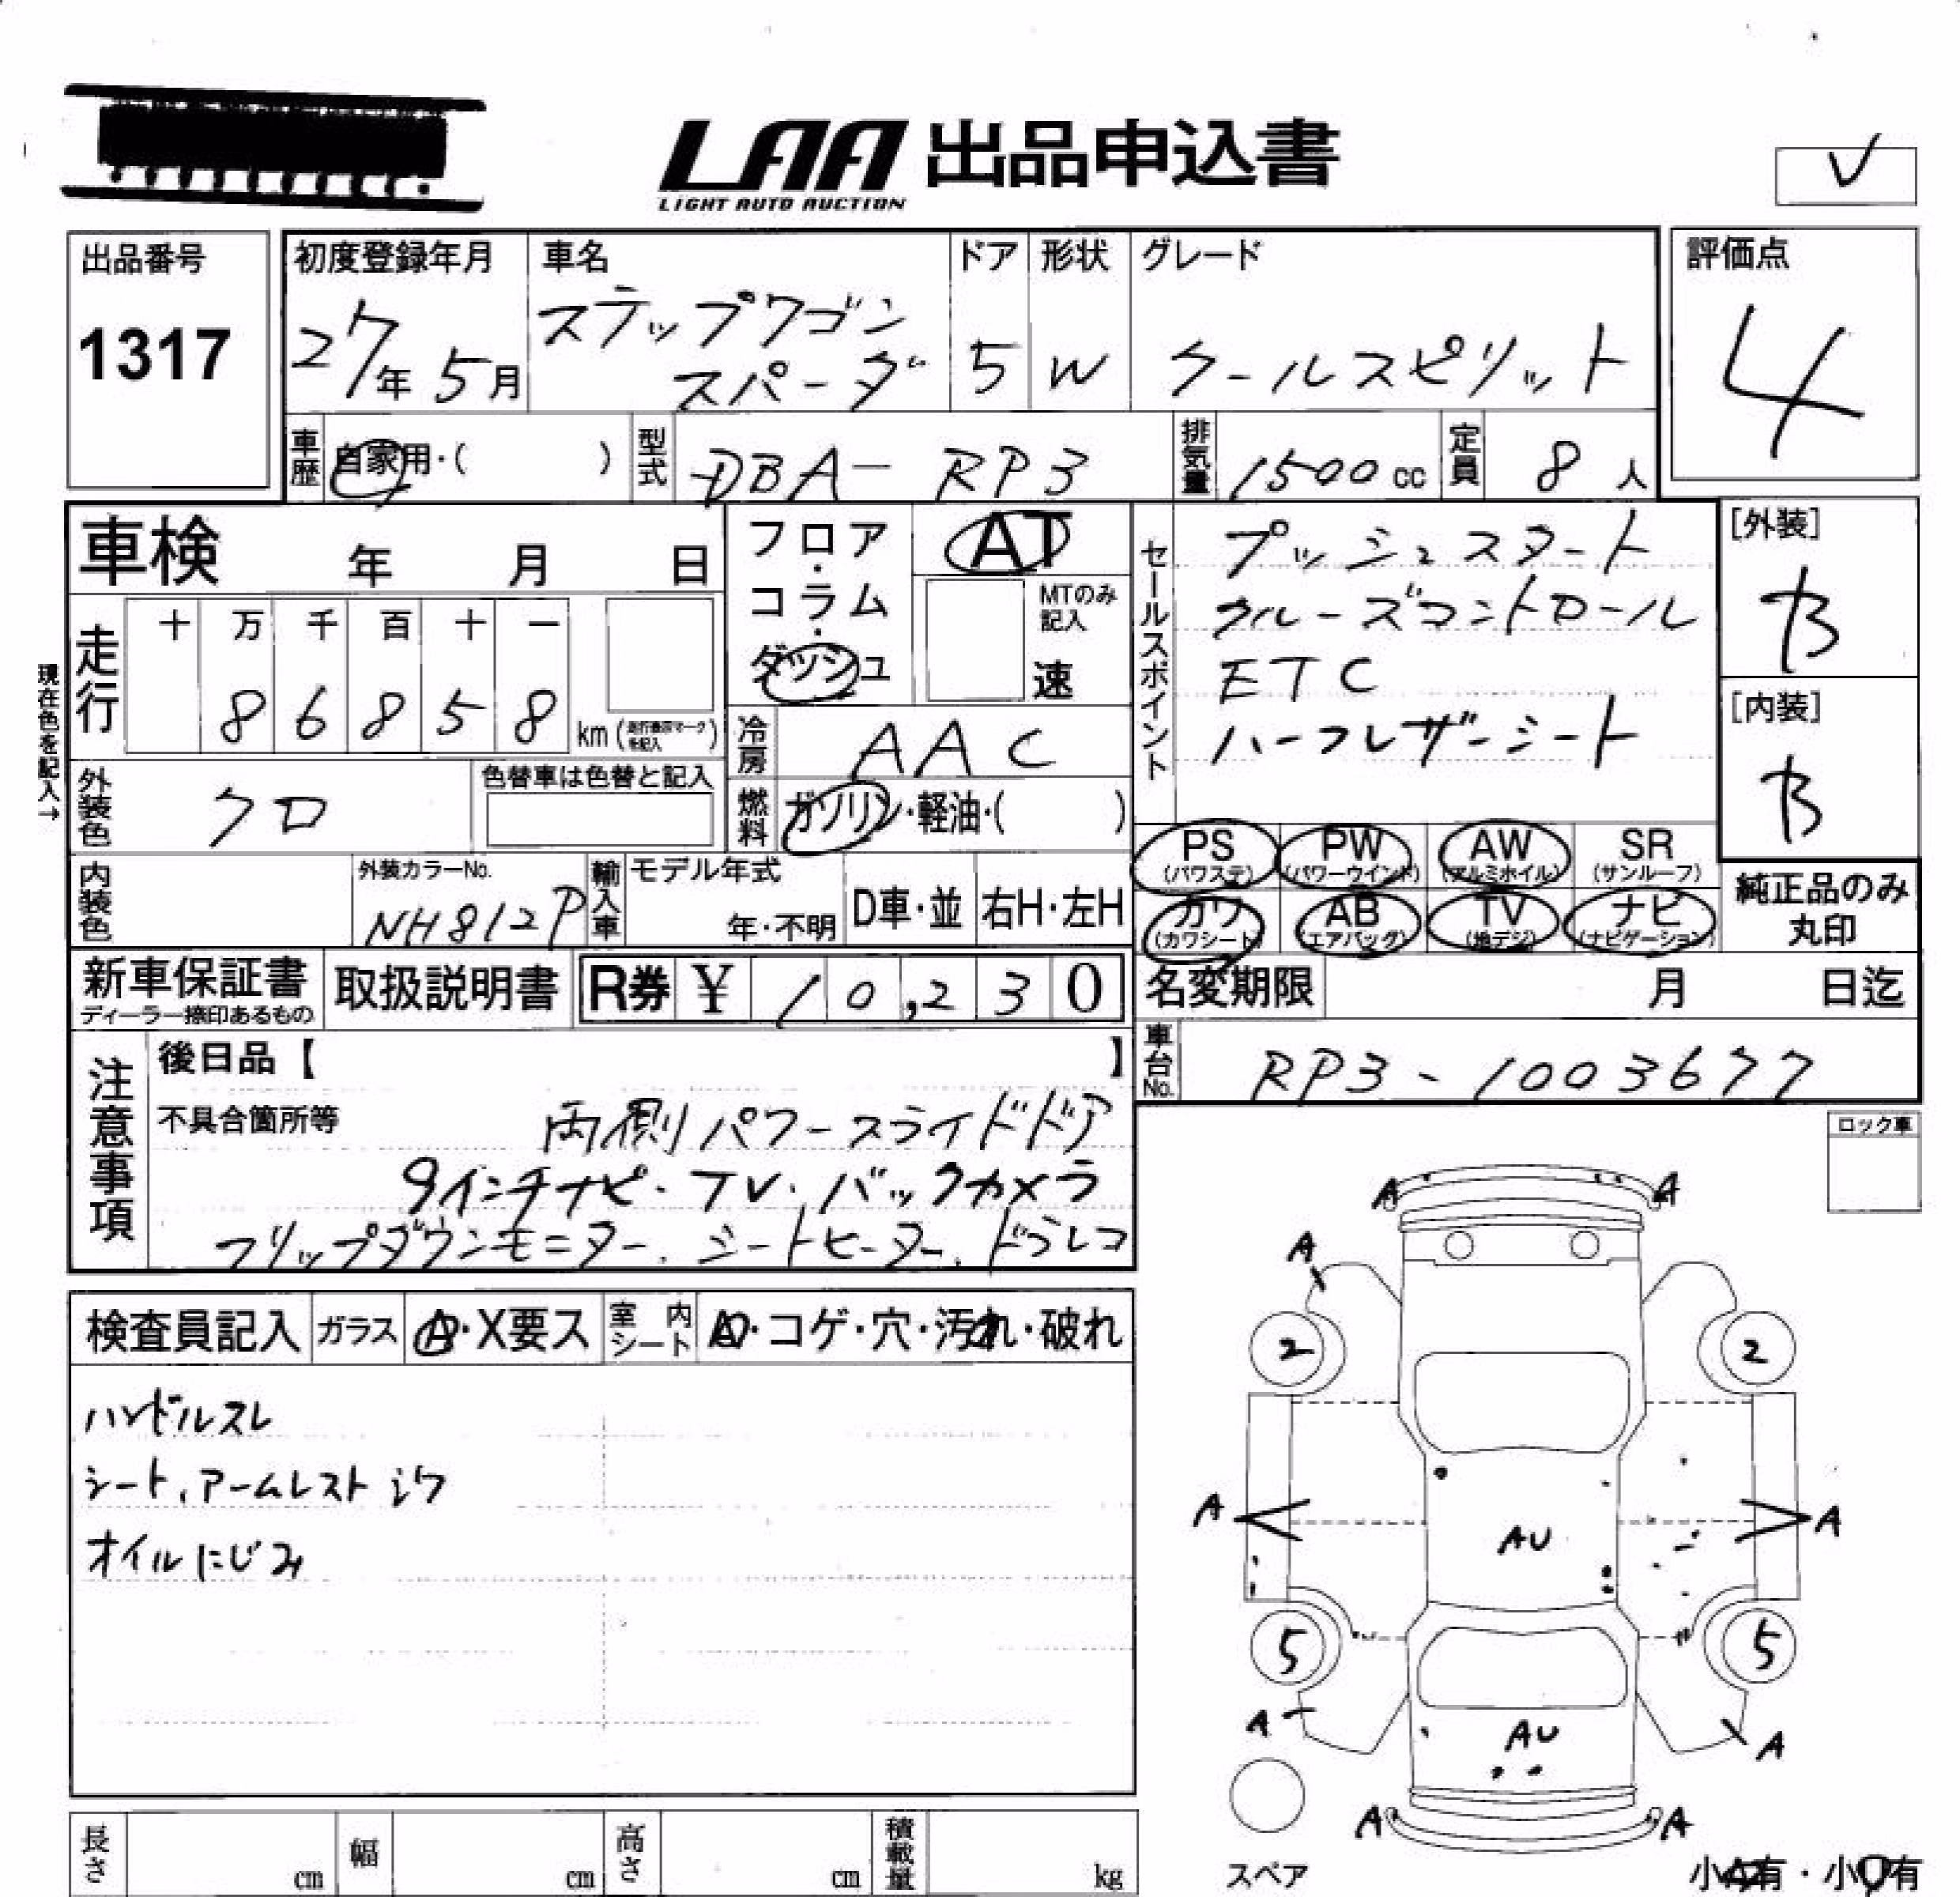 LAA 出品申込書
LIGHT AUTO AUCTION
出品番号
1317
初度登録年月
27年 5月
車名
ステップワゴン
スパーダ
ドア
5
形状
W
グレード
クールスピリット
評価点
4
車歴 自家用・( )
型式 DBA- RP3
排気量 1500 cc
定員 8 人
車検 年 月 日
フロア・コラム・ダッシュ
AT
MTのみ記入
速
セールスポイント
プッシュスタート
クルーズコントロール
ETC
ハーフレザーシート
[外装]
B
[内装]
B
現在色を記入→
走行 十 万 千 百 十 一
8 6 8 5 8 km (走行表示マークを記入)
冷房 AAC
燃料 ガソリン・軽油・( )
外装色 クロ
色替車は色替と記入
内装色
外装カラーNo.
NH812P
輸入車 モデル年式
年・不明
D車・並
右H・左H
PS (パワステ)
PW (パワーウインド)
AW (アルミホイル)
SR (サンルーフ)
カワ (カワシート)
AB (エアバッグ)
TV (地デジ)
ナビ (ナビゲーション)
純正品のみ
丸印
新車保証書
ディーラー捺印あるもの
取扱説明書
R券 ¥ 10,230
名変期限 月 日迄
車台No. RP3-1003677
注意事項
後日品【 】
不具合箇所等
両側パワースライドドア
9インチナビ・TV・バックカメラ
フリップダウンモニター、シートヒーター、ドラレコ
ロック車
検査員記入
ガラス
A・X要ス
室内シート
・コゲ・穴・汚れ・破れ
ハンドルスレ
シート、アームレスト シワ
オイルにじみ
A A
A
2 2
A A
AU
5 5
A A
AU
A A
スペア
長さ cm
幅 cm
高さ cm
積載量 kg
小 有・小 有